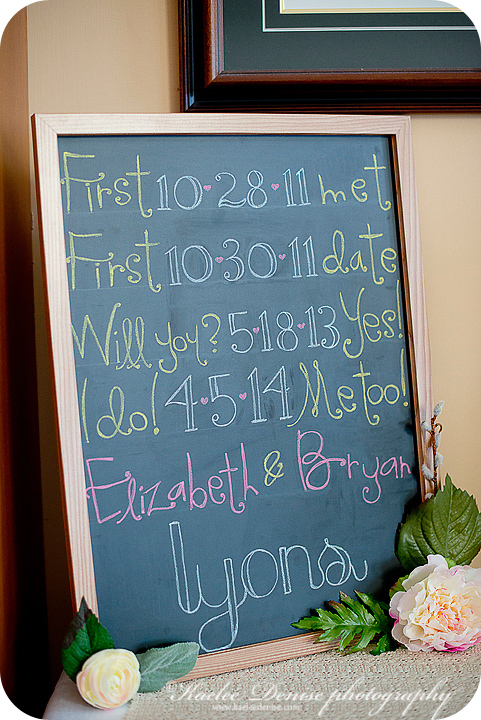 First 10♥28♥11 met
First 10♥30♥11 date
Will you? 5♥18♥13 Yes!
I do! 4♥5♥14 Me too!
Elizabeth & Bryan
lyons
Raelee Denise photography